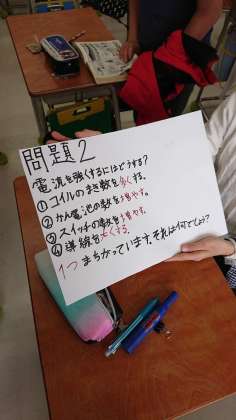 問題2
電流を強くするにはどうする?
①コイルのまき数を多くする。
②かん電池の数を増やす。
③スイッチの数を増やす。
④導線を太くする。
1つまちがっています。それは何でしょう?